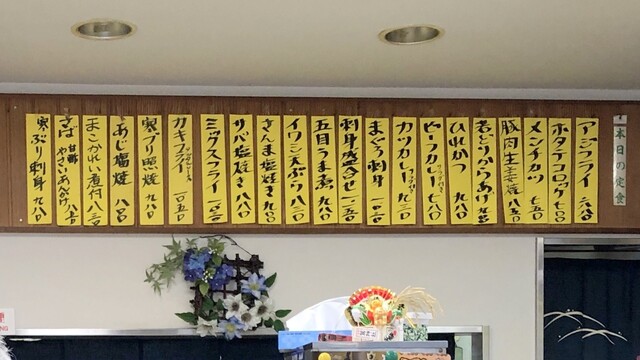 本日の定食
アジフライ
ホタテコロッケ 七〇〇
メンチカツ 七五〇
豚肉生姜焼 八五〇
若どりからあげ
ひれかつ 九八〇
ビーフカレー サラダ付 七八〇
カツカレー サラダ付 九三〇
まぐろ刺身
刺身盛合せ
五目うま煮 九八〇
イワシ天ぷら 八三〇
さんま塩焼き 八八〇
サバ塩焼き 八八〇
ミックスフライ
カキフライ 一〇五〇
寒ブリ照焼 九八〇
あじ塩焼 八〇〇
まこかれい煮付 八三〇
さば 甘酢 やさいあんかけ
寒ぶり刺身 九八〇